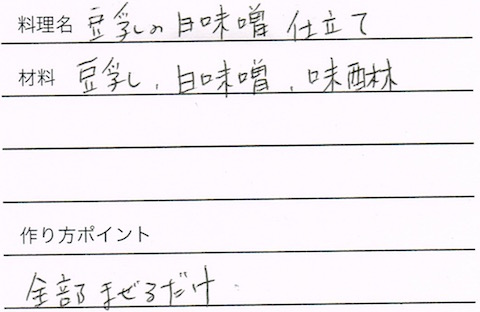 料理名 豆乳の白味噌仕立て
材料 豆乳、白味噌、味醂
作り方ポイント
全部まぜるだけ.